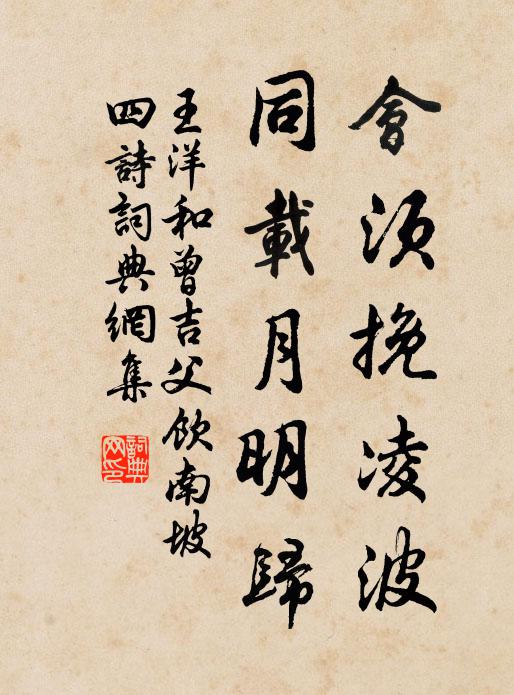 會須挽凌波
同載月明歸
王洋和曾吉父飲南坡
四詩詞典網集
詞典网印